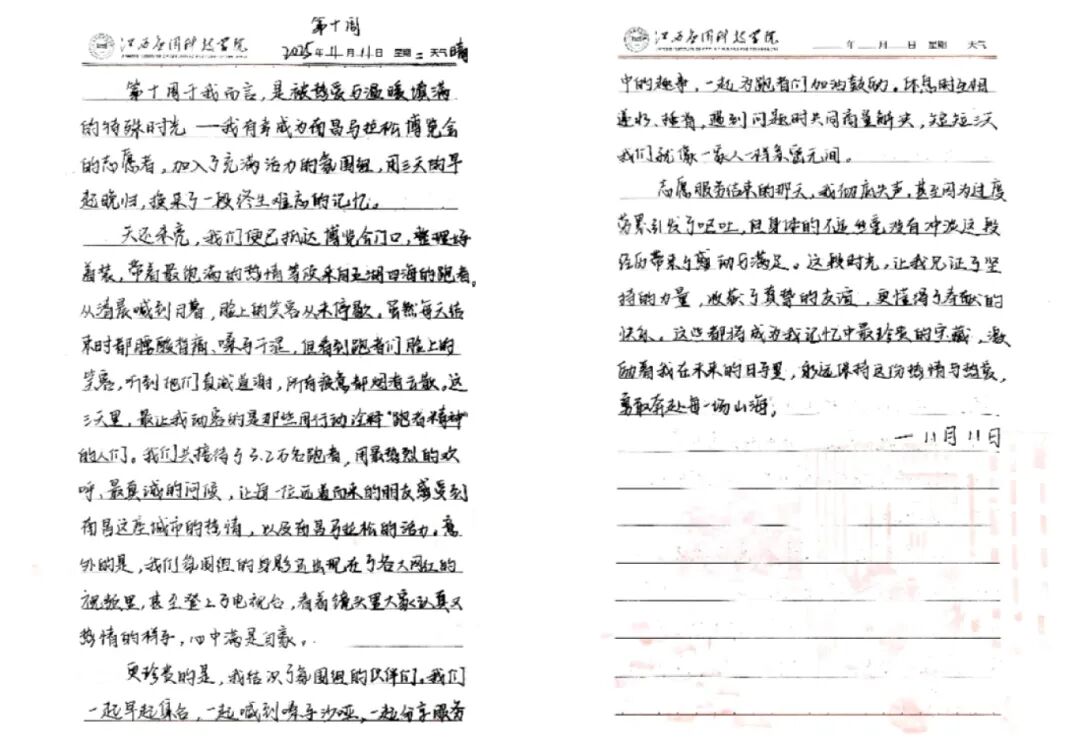 第十周
江西应用科技学院
2025年11月11日 星期二 天气晴
第十周于我而言，是被热爱与温暖填满
的特殊时光——我有幸成为南昌马拉松博览会
的志愿者，加入了充满活力的氛围组，用三天的早
起晚归，换来了一段终生难忘的记忆。
天还未亮，我们便已抵达博览会门口，整理好
着装，带着最饱满的热情等候来自五湖四海的跑者。
从清晨喊到日暮，脸上的笑容从未停歇。虽然每天结
束时都腰酸背痛、嗓子干涩，但看到跑者们脸上的
笑容，听到他们真诚道谢，所有疲惫都烟消云散。这
三天里，最让我动容的是那些用行动诠释“跑者精神”
的人们。我们共接待了3.2万名跑者，用最热烈的欢
呼、最真诚的问候，让每一位远道而来的朋友感受到
南昌这座城市的热情，以及南昌马拉松的活力。意
外的是，我们氛围组的身影还出现在了各大网红的
视频里，甚至登上了电视台，看着镜头里大家认真又
热情的样子，心中满是自豪。
更珍贵的是，我结识了氛围组的伙伴们。我们
一起早起集合，一起喊到嗓子沙哑，一起分享服务
江西应用科技学院
年 月 日 星期 天气
中的趣事，一起为跑者们加油鼓劲。休息时互相
递水、捶背，遇到问题时共同商量解决，短短三天
我们就像一家人一样亲密无间。
志愿服务结束的那天，我彻底失声，甚至因为过度
劳累引发了呕吐，但身体的不适丝毫没有冲淡这段
经历带来的感动与满足。这段时光，让我见证了坚
持的力量，收获了真挚的友谊，更懂得了奉献的
快乐。这些都将成为我记忆中最珍贵的宝藏，激
励着我在未来的日子里，永远保持这份热情与热爱，
勇敢奔赴每一场山海。
—11月11日